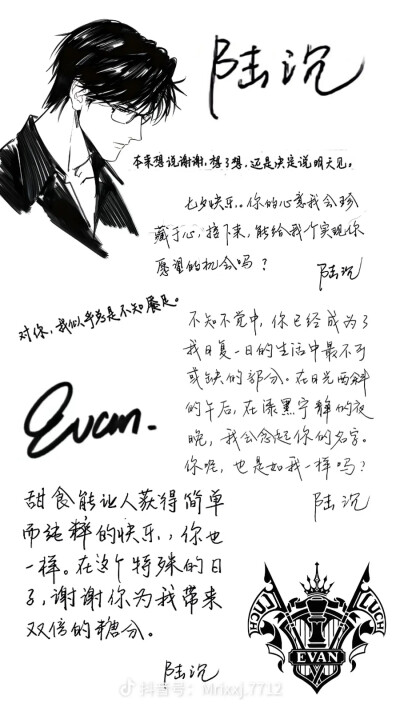 陆沉
本来想说谢谢,想了想,还是决定说明天见。
七夕快乐。你的心意我会珍
藏于心,接下来,能给我个实现你
愿望的机会吗?
陆沉
对你,我似乎总是不知餍足。
不知不觉中,你已经成为了
我日复一日的生活中最不可
或缺的部分。在日光西斜
的午后,在漆黑宁静的夜
晚,我会念起你的名字。
你呢,也是如我一样吗?
陆沉
Evan.
甜食能让人获得简单
而纯粹的快乐,你也
一样。在这个特殊的日
子,谢谢你为我带来
双倍的糖分。
陆沉
LUCH
LUCH
EVAN
抖音号:Mrlxxj.7712